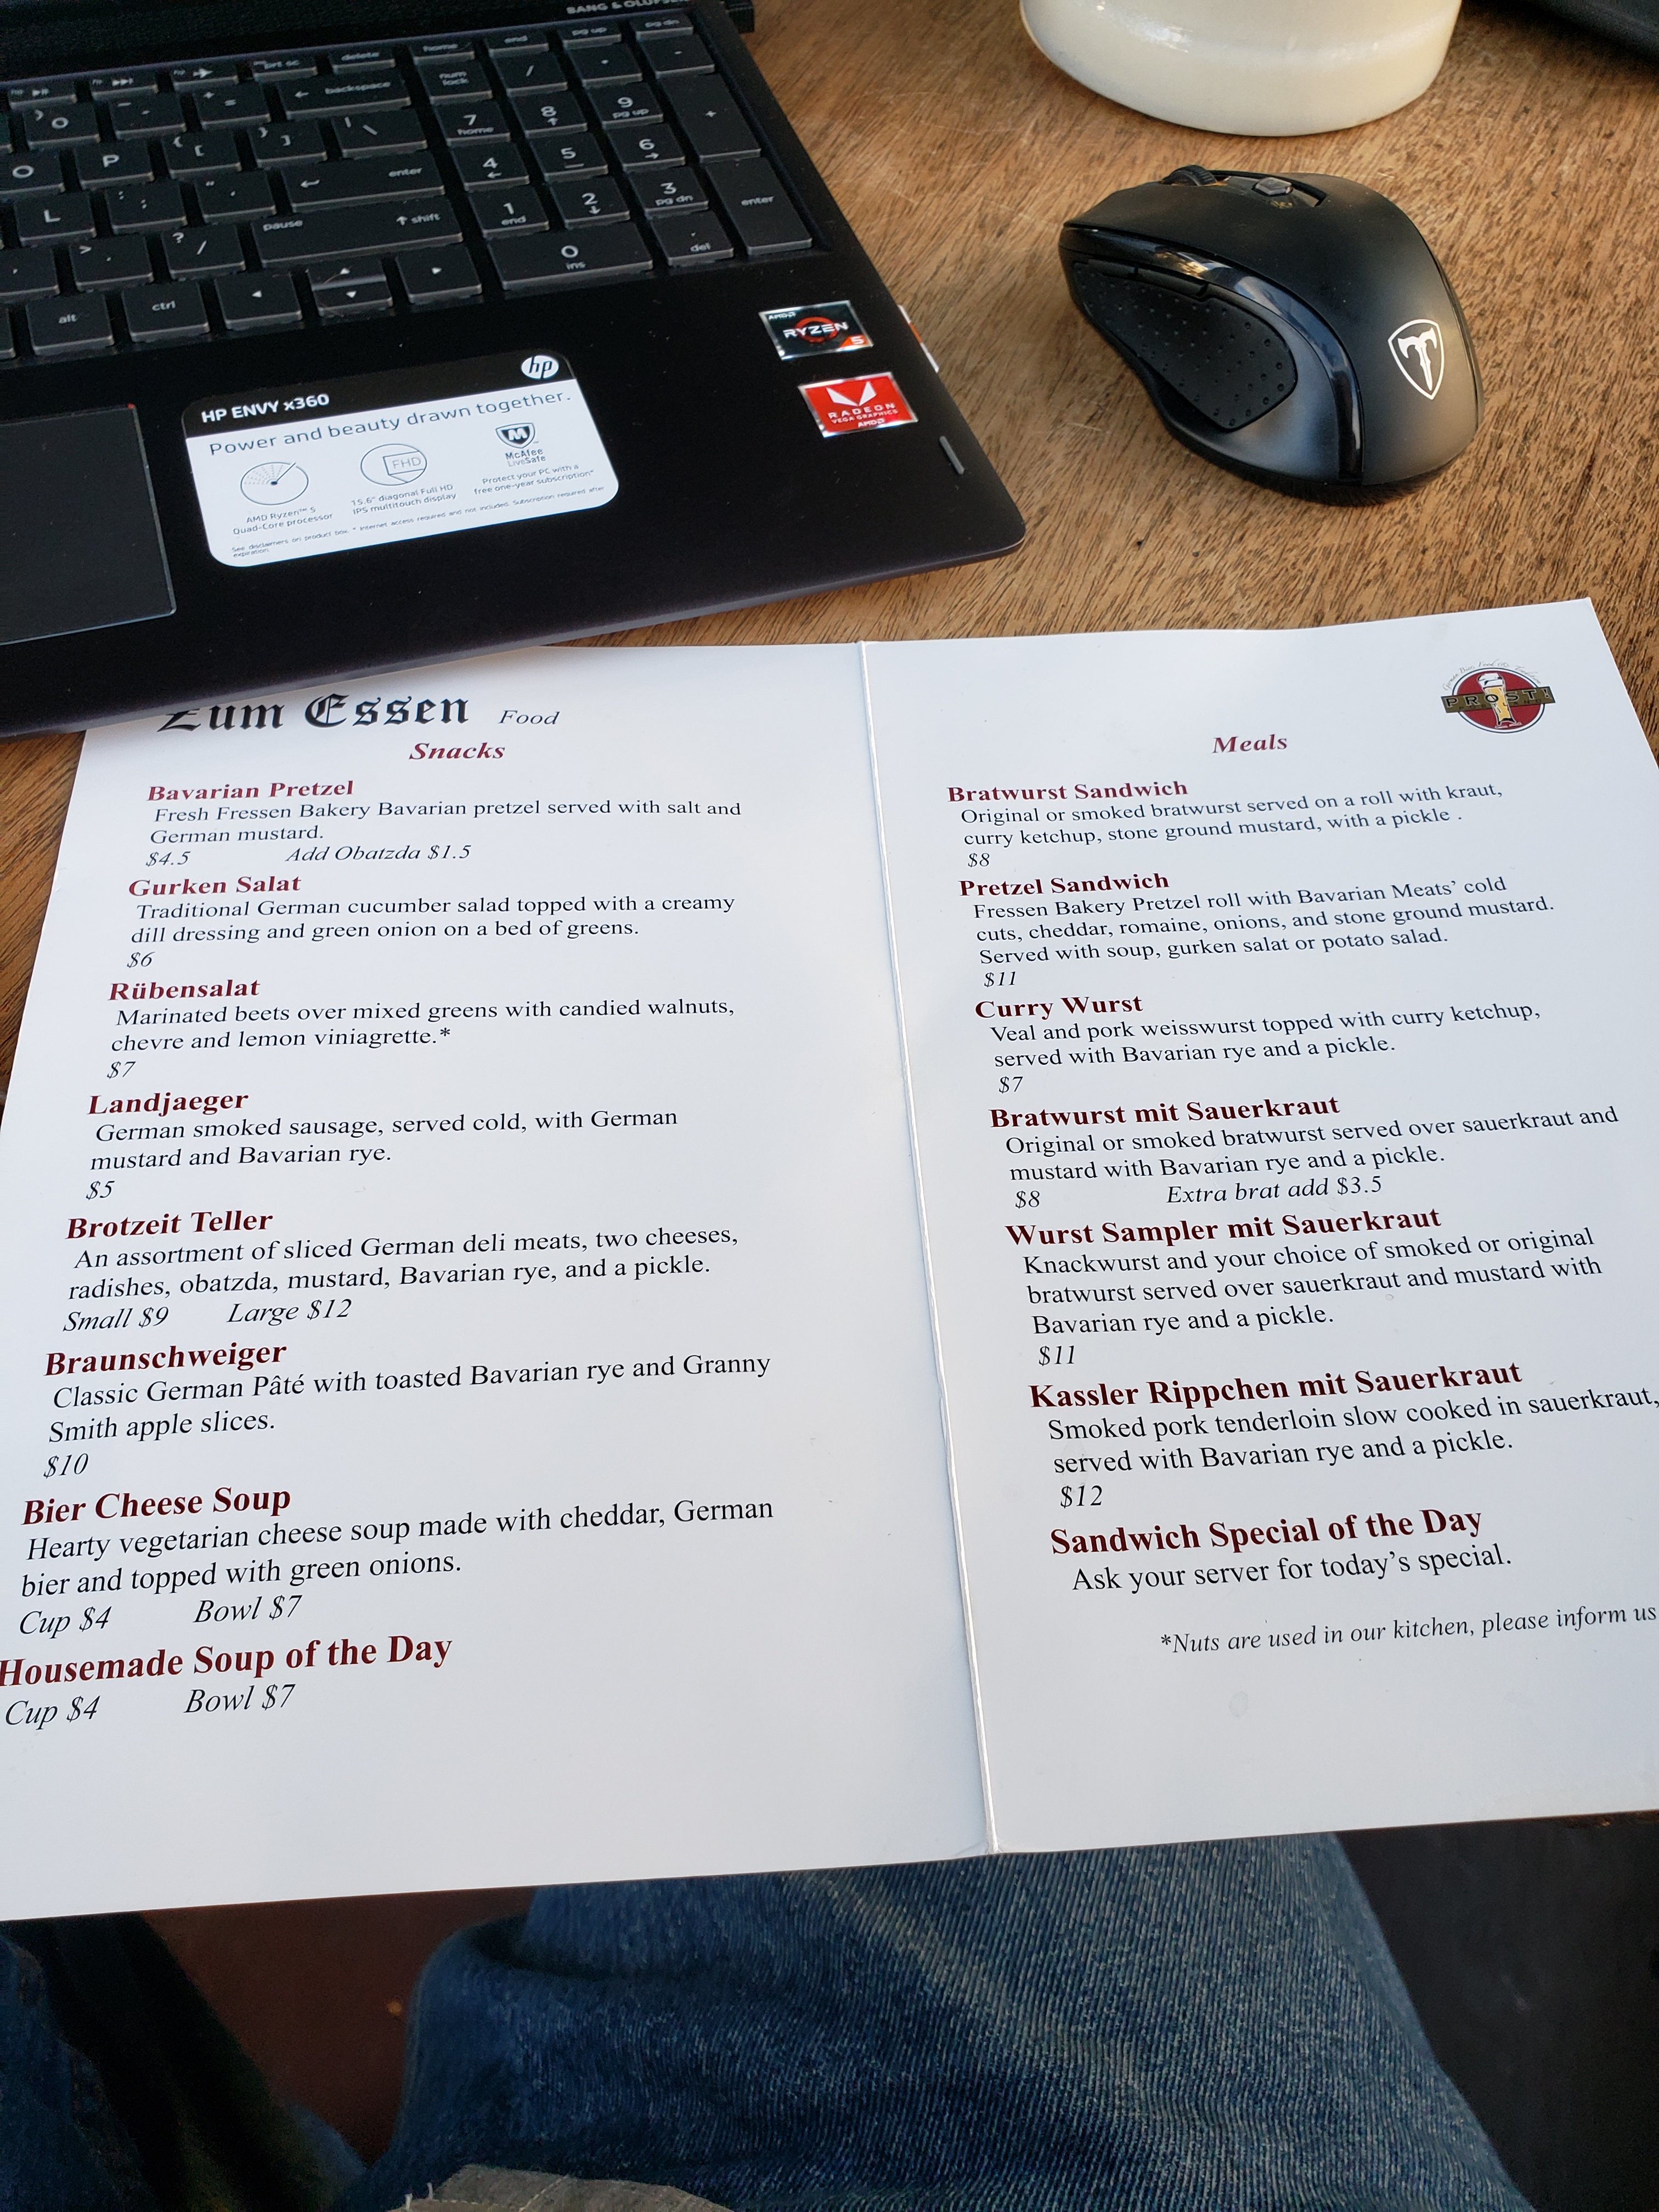 BANG & OLUFSEN
prt sc
delete
home
end
pg up
pg dn
backspace
num
lock
7
home
8
9
pg up
O
P
enter
4
5
6
L
pause
shift
1
end
2
3
pg dn
enter
alt
ctrl
0
ins
del
AMD
RYZEN
5
RADEON
VEGA GRAPHICS
AMD
hp
HP ENVY x360
Power and beauty drawn together.
FHD
McAfee
LiveSafe
AMD Ryzen™ 5
Quad-Core processor
15.6" diagonal Full HD
IPS multitouch display
Protect your PC with a
free one-year subscription*
See disclaimers on product box. * Internet access required and not included. Subscription required after
expiration.
Zum Essen Food
Snacks
Bavarian Pretzel
Fresh Fressen Bakery Bavarian pretzel served with salt and
German mustard.
$4.5 Add Obatzda $1.5
Gurken Salat
Traditional German cucumber salad topped with a creamy
dill dressing and green onion on a bed of greens.
$6
Rübensalat
Marinated beets over mixed greens with candied walnuts,
chevre and lemon viniagrette.*
$7
Landjaeger
German smoked sausage, served cold, with German
mustard and Bavarian rye.
$5
Brotzeit Teller
An assortment of sliced German deli meats, two cheeses,
radishes, obatzda, mustard, Bavarian rye, and a pickle.
Small $9 Large $12
Braunschweiger
Classic German Pâté with toasted Bavarian rye and Granny
Smith apple slices.
$10
Bier Cheese Soup
Hearty vegetarian cheese soup made with cheddar, German
bier and topped with green onions.
Cup $4 Bowl $7
Housemade Soup of the Day
Cup $4 Bowl $7
PROST!
Meals
Bratwurst Sandwich
Original or smoked bratwurst served on a roll with kraut,
curry ketchup, stone ground mustard, with a pickle .
$8
Pretzel Sandwich
Fressen Bakery Pretzel roll with Bavarian Meats' cold
cuts, cheddar, romaine, onions, and stone ground mustard.
Served with soup, gurken salat or potato salad.
$11
Curry Wurst
Veal and pork weisswurst topped with curry ketchup,
served with Bavarian rye and a pickle.
$7
Bratwurst mit Sauerkraut
Original or smoked bratwurst served over sauerkraut and
mustard with Bavarian rye and a pickle.
$8 Extra brat add $3.5
Wurst Sampler mit Sauerkraut
Knackwurst and your choice of smoked or original
bratwurst served over sauerkraut and mustard with
Bavarian rye and a pickle.
$11
Kassler Rippchen mit Sauerkraut
Smoked pork tenderloin slow cooked in sauerkraut,
served with Bavarian rye and a pickle.
$12
Sandwich Special of the Day
Ask your server for today's special.
*Nuts are used in our kitchen, please inform us